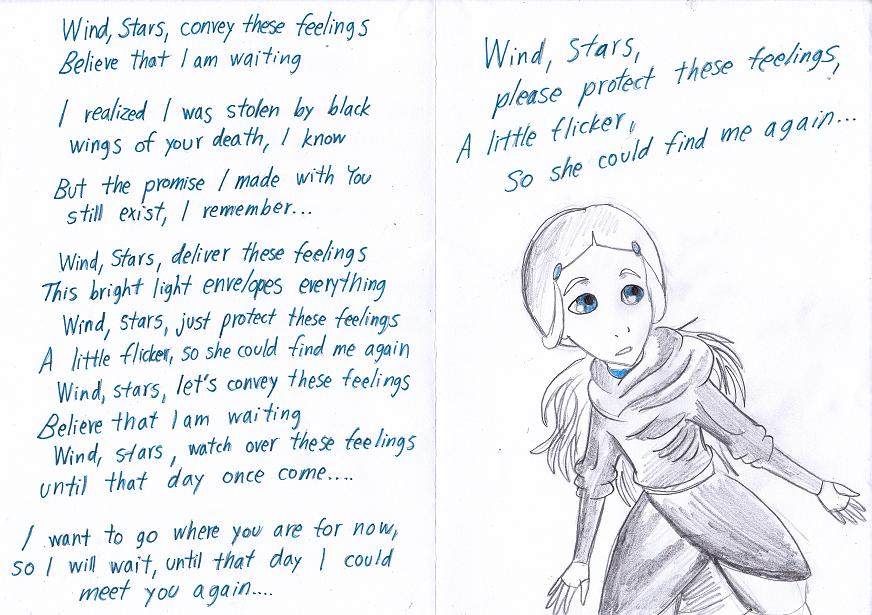 Wind, Stars, convey these feelings
Believe that I am waiting
I realized I was stolen by black
wings of your death, I know
But the promise I made with You
still exist, I remember...
Wind, Stars, deliver these feelings
This bright light envelopes everything
Wind, stars, just protect these feelings
A little flicker, so she could find me again
Wind, stars, let's convey these feelings
Believe that I am waiting
Wind, stars, watch over these feelings
until that day once come....
I want to go where you are for now,
so I will wait, until that day I could
meet you again....
Wind, Stars,
please protect these feelings,
A little flicker,
So she could find me again...